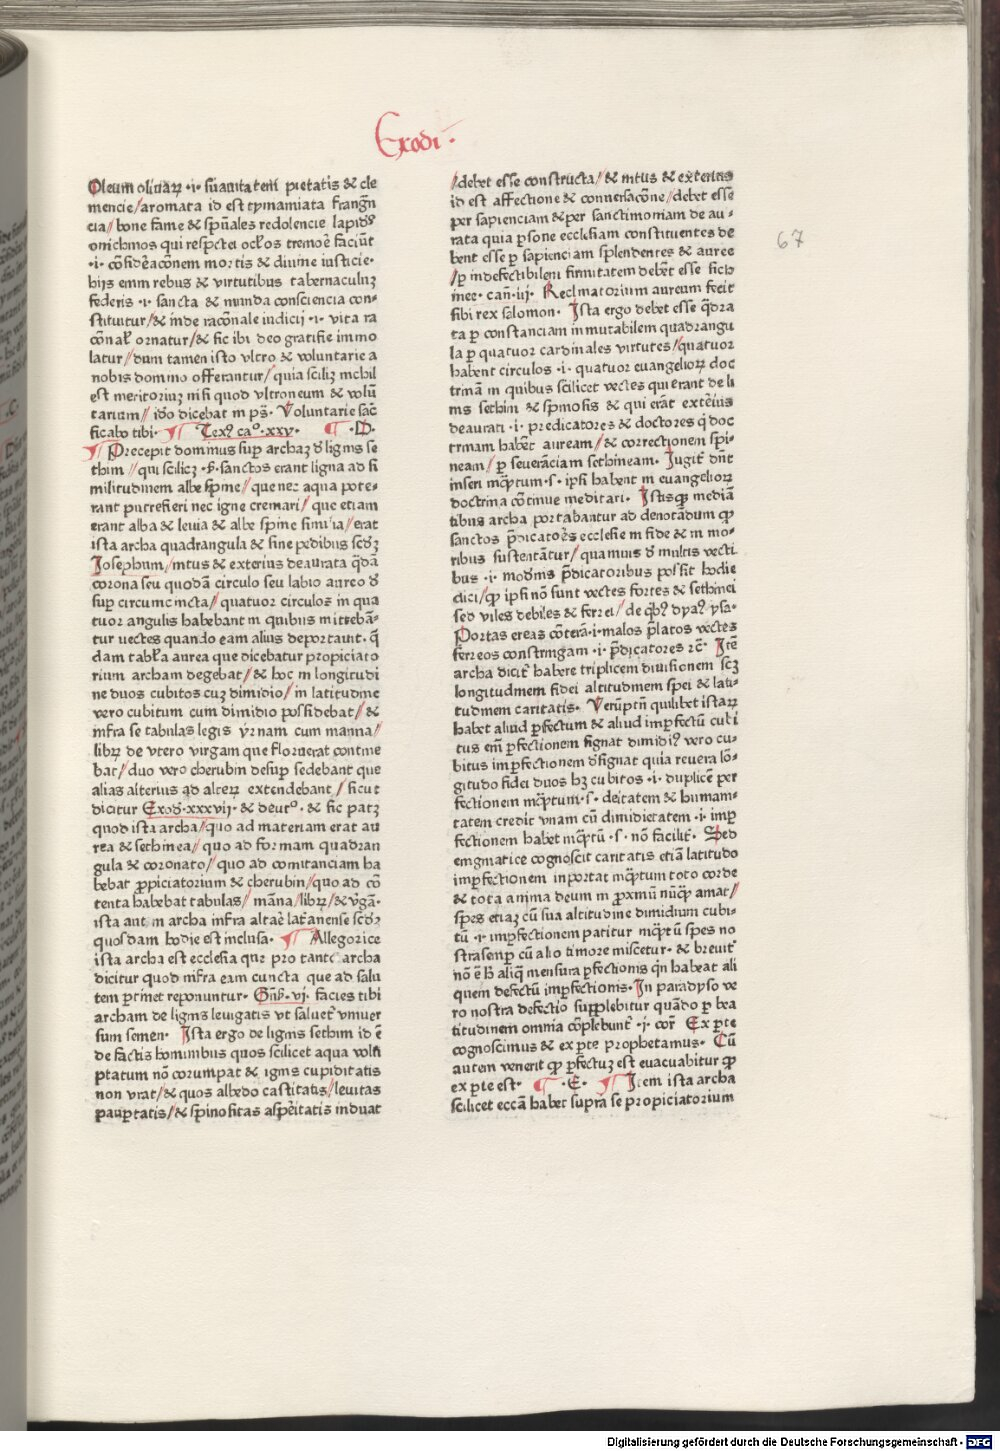 Exodi ·
67
Oleum olivarꝝ ·i· suauitatem pietatis & cle
mencie/aromata id est tymamiata frangñ
cia/bone fame & spũales redolencie lapidꝰ
onichinos qui respctei oclos tremoẽ faciũt
·i· cõsideacõnem mortis & diuine iusticie·
hijs emm rebus & virtutibus tabernaculuꝫ
federis ·i· sancta & munda consciencia con-
stituitur/& inde racõnale iudicij ·i· vita ra
cõnal ornatur/& sic ibi deo gratifie immo
latur/dum tamen isto vltro & voluntarie a
nobis domino offerantur/quia sciliꝫ nichil
est meritoriuꝫ nisi quod vltroneum & volũ
tarium/iđo dicebat in ps̃· Voluntarie sac̃
ficabo tibi· ¶ Texꝰ caº·xxv· ¶ ·D·
¶ Precepit dominus sup archaꝫ đ lignis se
thim/qui sciliꝫ ·ẜ·sanctos erant ligna ad si
militudinem albe spine/que nec aqua pote-
rant putrefieri nec igne cremari/que etiam
erant alba & leuia & albe spine similia/erat
ista archa quadrangula & sine pedibus scđꝫ
Josephum/intus & exterius deaurata q̃dã
corona seu quodã circulo seu labio aureo đ
sup circumcincta/quatuor circulos in qua
tuor angulis habebant in quibus mittebã-
tur uectes quando eam alius deportauit· q̃
dam tabla aurea que dicebatur propiciato
rium archam degebat/& hoc in longitudi
ne duos cubitos cuꝫ dimidio/in latitudine
vero cubitum cum dimidio possidebat/&
infra se tabulas legis vrnam cum manna/
librꝫ de vtero virgam que floruerat contine
bat/duo vero cherubin desup sedebant que
alias alterius ad alterꝫ extendebant/sicut
dicitur Exođ·xxxvij· & deutº· & sic patꝫ
quod ista archa/quo ad materiam erat au
rea & sethinea/quo ad formam quadran
gula & coronato/quo ad comitanciam ha
bebat ꝓpiciatorium & cherubin/quo ad cõ
tenta habebat tabulas/mãna/librꝫ/&ṽgã·
ista aut̃ in archa infra altaẽ lat̃anense scđꝫ
quosdam hodie est inclusa· ¶ Allegorice
ista archa est ecclesia que pro tanto archa
dicitur quod infra eam cuncta que ad salu
tem ꝑtinet reponuntur· Gñẜ·vj· facies tibi
archam de lignis leuigatis vt saluet̃ vniuer
sum semen· Ista ergo de lignis sethim id ẽ
de factis hominibus quos scilicet aqua volu
ptatum nõ corumpat & ignis cupiditatis
non vrat/& quos albedo castitatis/leuitas
pauꝑtatis/& spinositas asꝑeitatis induat
/debet esse constructa/& intus & exterius
id est affectione & conuersacõne/debet esse
per sapienciam & per sanctimoniam de au-
rata quia ꝑsone ecclesiam constituentes de
bent esse ꝑ sapienciam splendentes & auree
/ꝑ indefectibilem firmitatem debẽt esse sichi
mee· cañ·iij· Reclinatorium aureum fecit
sibi rex salomon· Ista ergo debet esse q̃dra
ta ꝑ constanciam inmutabilem quadrangu
la ꝑ quatuor cardinales virtutes/quatuor
habent circulos ·i· quatuor euangeliorꝫ doc
trinã in quibus scilicet vectes qui erant de li
nis sethim & spinosis & qui erãt exterius
deaurati ·i· predicatores & doctores q̃ doc
trinam habẽt auream/& correctionem spi-
neam/ꝑ seuerãciam sethineam· Jugit̃ dñt
inseri inq̃tum·s· ipsi habent in euangeliorꝫ
doctrina cõtinue meditari· Istisqꝫ mediã
tibus archa portabantur ad denotãdum ꝙ
sanctos p̃dicatoẽs ecclesie in fide & in mo-
ribus sustentãtur/quamuis đ multis vecti
bus ·i· modñis p̃dicatoribus possit hodie
dici/ꝙ ipsi nõ sunt vectes fortes & sethinei
sed viles debiles & ferrei/de qbꝰ dyaꝰ ysa·
Portas ereas cõterã·i·malos p̃latos vectes
ferreos constringam ·i· p̃dicatores ⁊c̃· Itẽ
archa dicit̃ habere triplicem diuisionem scꝫ
longitudinem fidei altitudinem spei & lati-
tudinem caritatis· Verũptñ quilibet istarꝫ
habet aliud ꝑfectum & aliud imꝑfectũ cubi
tus em̃ ꝑfectionem signat dimidiꝰ vero cu-
bitus imꝑfectionem đsignat quia reuera lõ-
gitudo fidei duos hꝫ cubitos ·i· duplicẽ per
fectionem inq̃tum·s· deitatem & human-
tatem credit vnam cũ dimidietatem ·i· imꝑ
fectionem habet inq̃tũ ·s· nõ facilit̃· Sed
enigmatice cognoscit caritatis etiã latitudo
imꝑfectionem inportat inq̃tum toto corde
& tota anima deum in ꝓximũ nũqꝫ amat/
spes etiaꝫ cũ sua altitudine dimidium cubi-
tũ ·i· imꝑfectionem patitur inq̃tũ spes no
stra semꝑ cũ alio timore miscetur· & breuit̃
nõ ẽ ħ aliq̃ mensura ꝑfectionis q̃n habeat ali
quem defectũ imꝑfectionis· In paradyso ve
ro nostra defectio supplebitur quãdo ꝑ bea
titudinem omnia cõplebunt̃ ·j· cor̃ Ex ꝑte
cognoscimus & ex ꝑte prophetamus· Cũ
autem venerit ꝙ ꝑfectuꝫ est euacuabitur ꝙ
ex ꝑte est· ¶ ·E· ¶ Item ista archa
scilicet eccã habet supra se propiciatorium
Digitalisierung gefördert durch die Deutsche Forschungsgemeinschaft - DFG